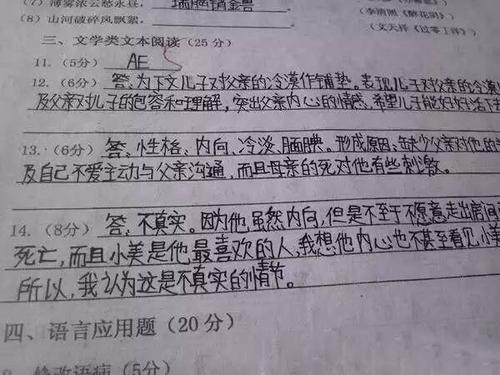 (7) 薄雾浓云愁永昼，瑞脑销金兽
(李清照《醉花阴》)
(8) 山河破碎风飘絮，
(文天祥《过零丁洋》)
三、文学类文本阅读(25分)
11.(5分) AE
12.(6分) 答、为下文儿子对父亲的冷漠作铺垫。表现儿子对父亲的冷漠
及父亲对儿子的包容和理解，突出父亲内心的情感，希望儿子能好好活下
13.(6分) 答、性格、内向、冷淡、腼腆。形成原因：缺少父亲对他的
及自己不爱主动与父亲沟通，而且母亲的死对他有些刺激。
14.(8分) 答，不真实。因为他虽然内向，但是不至于不愿意走出房间
死亡，而且小美是他最喜欢的人，我想他内心也不甚至看见小美
所以，我认为这是不真实的情节。
四、语言应用题(20分)
修改语病(5分)